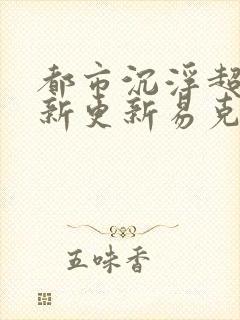 都市沉浮超
新更新易克
五味香